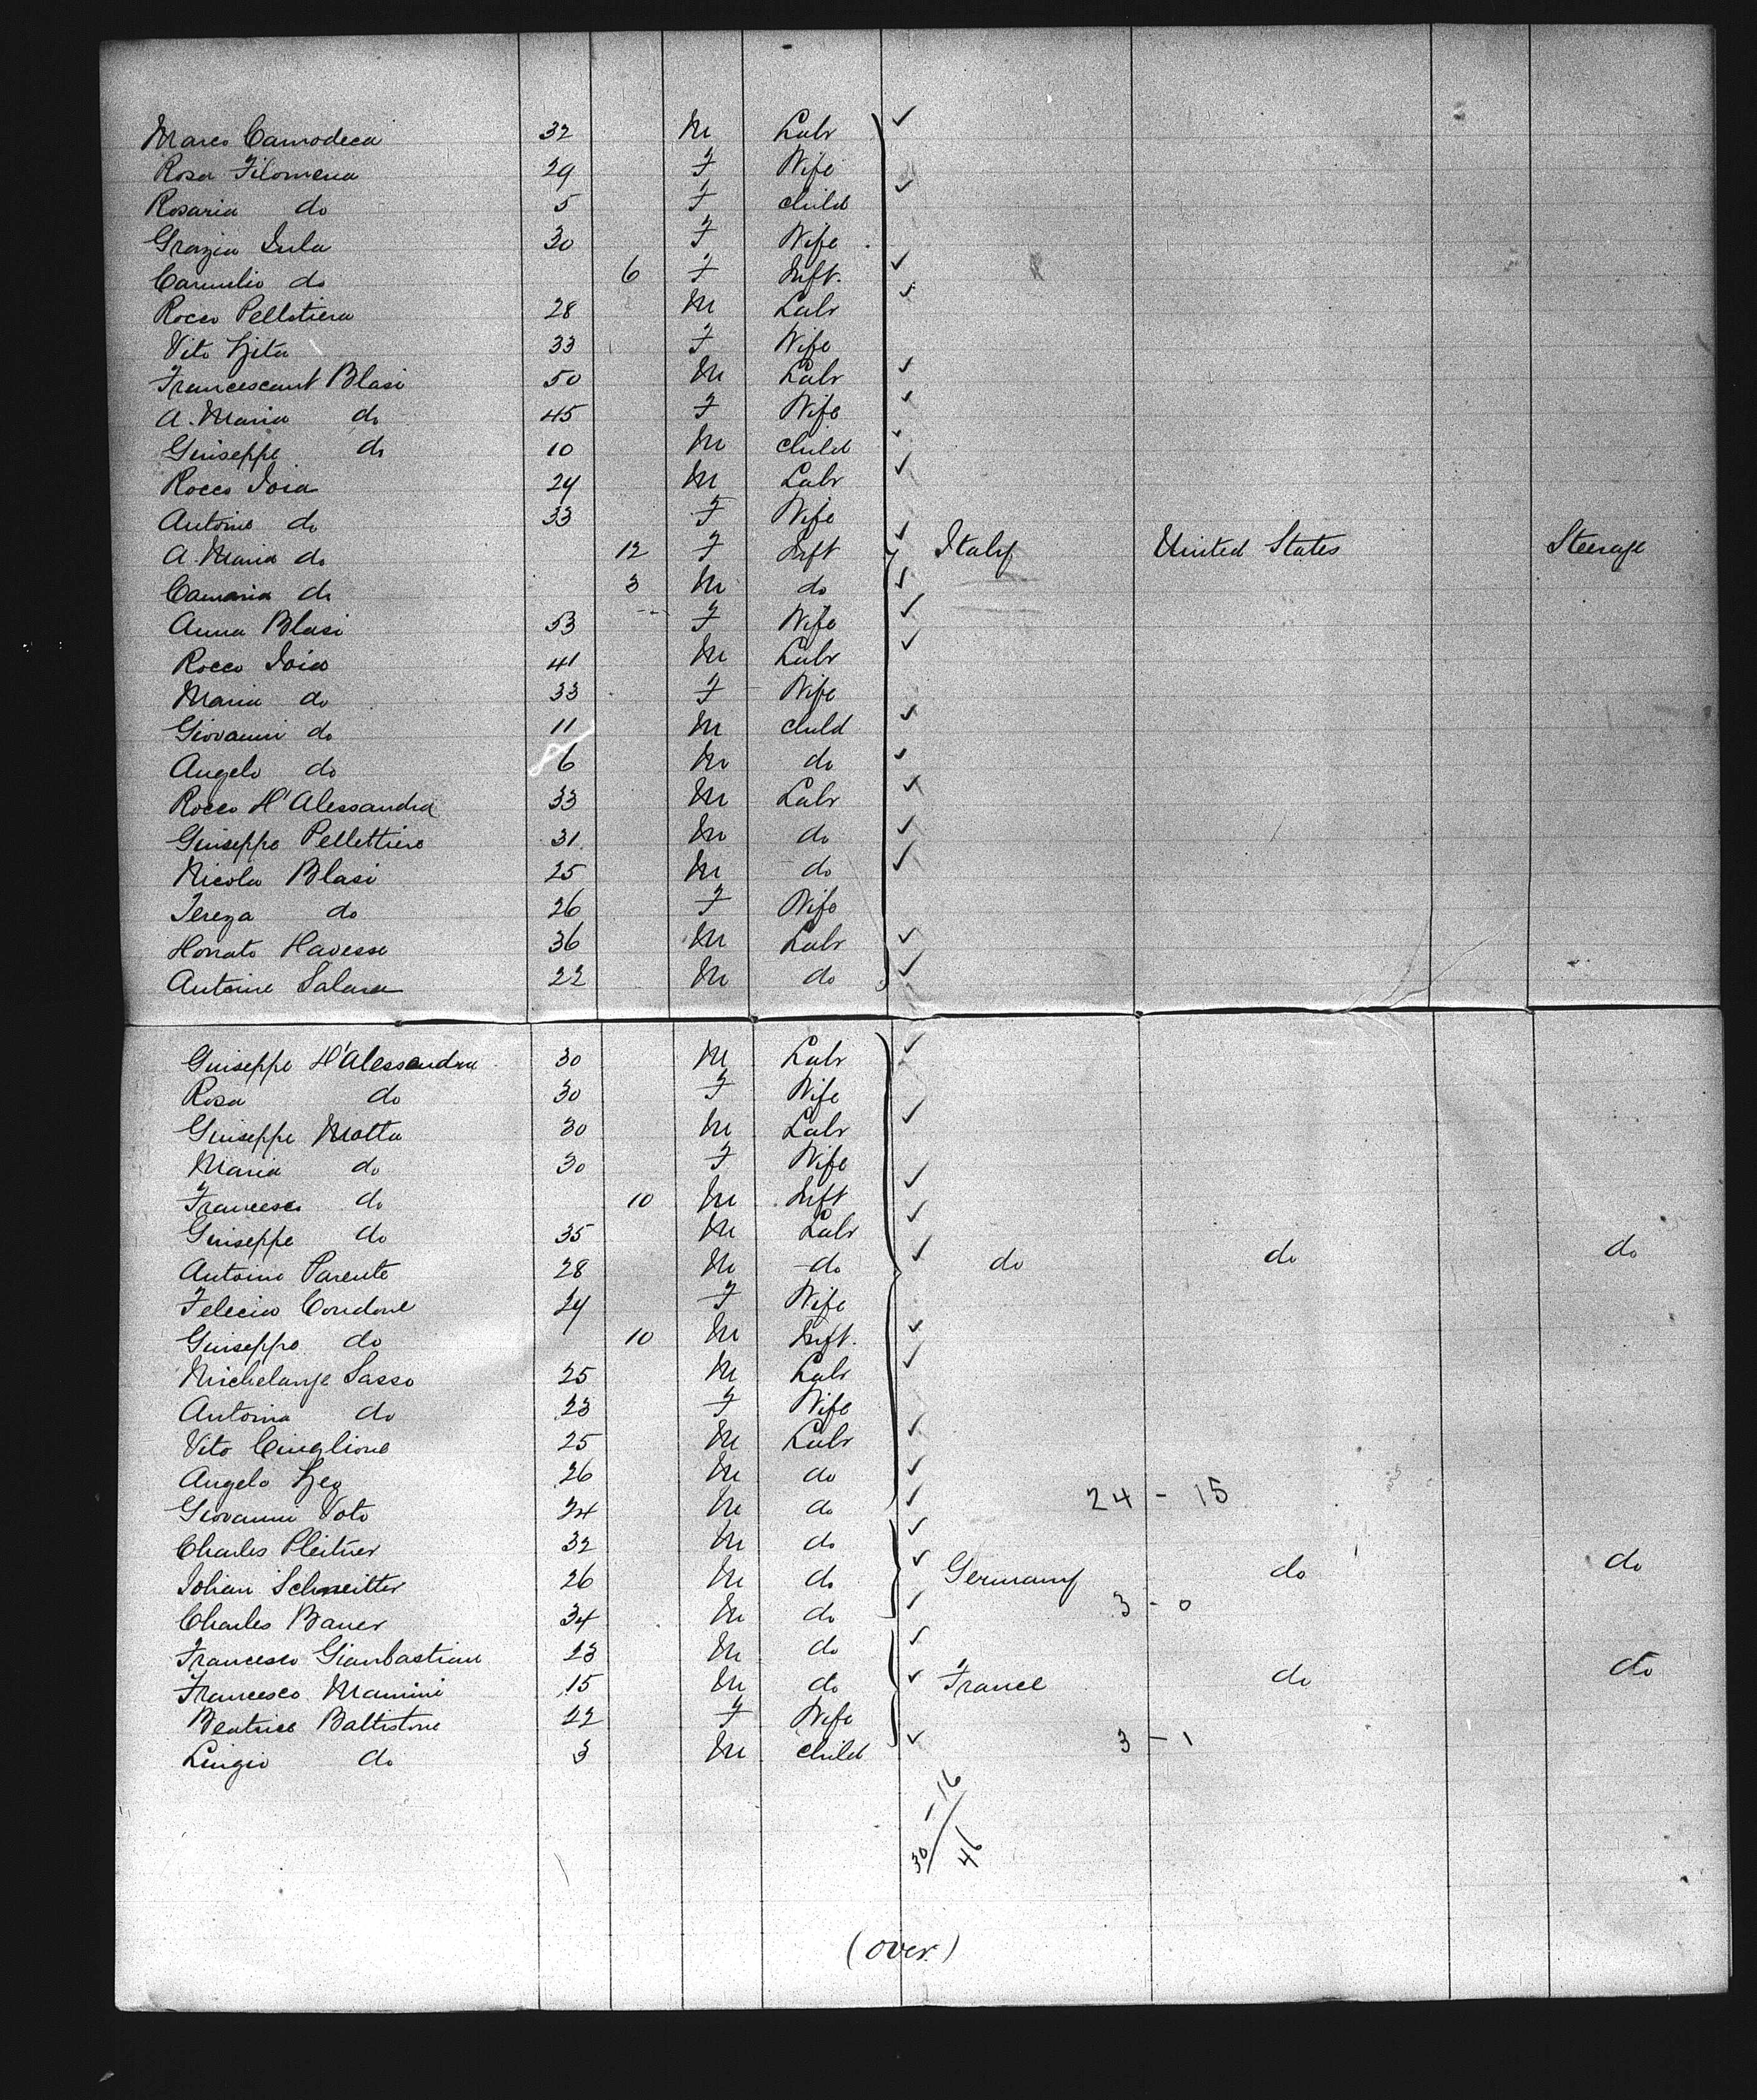 Marco Camodeca 32 M Labr
Rosa Filomena 29 F Wife
Rosaria do 5 F child
Grazia Iula 30 F Wife
Carmilio do 6 F Inft.
Rocco Pelletiera 28 M Labr
Vito Zita 33 F Wife
Francescant Blasi 50 M Labr
A. Maria do 45 F Wife
Giuseppe do 10 M child
Rocco Ioia 24 M Labr
Antoine do 33 F Wife
A. Maria do 12 F Inft Italy United States Steerage
Camaria do 3 M do
Anna Blasi 53 F Wife
Rocco Ioia 41 M Labr
Maria do 33 F Wife
Giovanni do 11 M child
Angelo do 6 M do
Rocco H'Alessandra 33 M Labr
Giuseppe Pellettiere 31 M do
Nicola Blasi 25 M do
Tereza do 26 F Wife
Honato Havesse 36 M Labr
Antoine Salara 22 M do
Guiseppe H'Alessandra 30 M Labr
Rosa do 30 F Wife
Guiseppe Motta 30 M Labr
Maria do 30 F Wife
Francesco do 10 M Inft
Guiseppe do 35 M Labr
Antoine Parente 28 M do do do do
Felecia Condone 24 F Wife
Guiseppe do 10 M Inft.
Michelange Sasso 25 M Labr
Antoina do 23 F Wife
Vito Ciuglione 25 M Labr
Angelo 26 M do
Giovanni Voto 24 M do 24 - 15
Charles Pleitner 32 M do
Johan Schneitter 26 M do Germany do do
Charles Bauer 34 M do 3 - 0
Francesco Gianbastiani 23 M do
Francesco Mannini 15 M do France do do
Beatrice Battistone 22 F Wife
Luigio do 3 M child 3 - 1
30 - 16
46
(over)